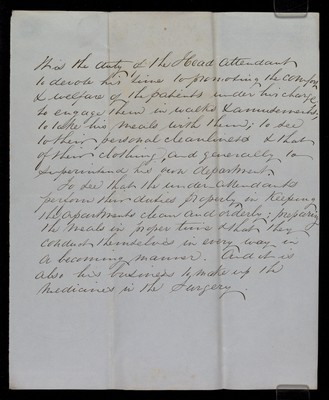 It is the duty of the Head Attendant
to devote his time to promoting the comfort
& welfare of the patients under his charge
to engage them in walks & amusements,
to take his meals with them; to see
to their personal cleanliness & that
of their clothing, and generally to
Superintend his own department.
To see that the under attendants
perform their duties properly in keeping
the apartments clean and orderly; preparing
the meals in proper time & that they
conduct themselves in every way in
a becoming manner. And it is
also his business to make up the
Medicines in the Surgery.